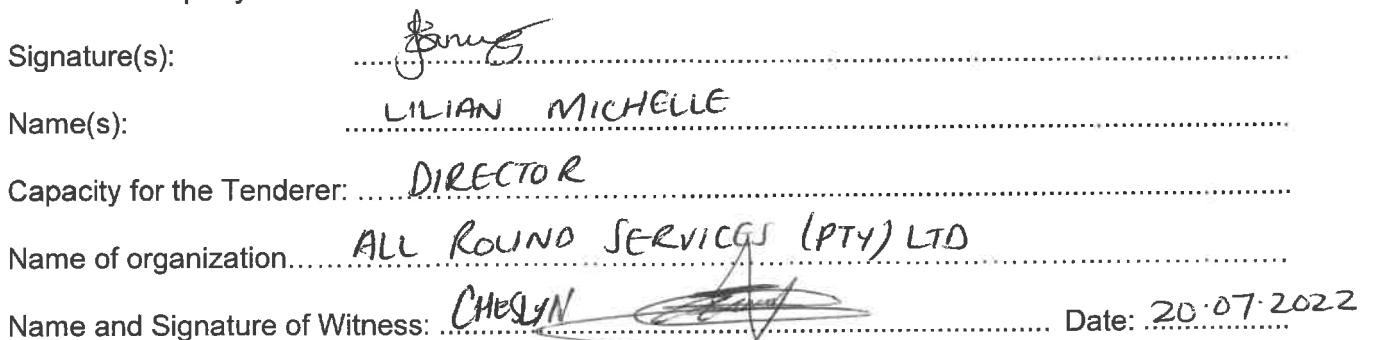 Signature(s):
Name(s): LILIAN MICHELLE
Capacity for the Tenderer: DIRECTOR
Name of organization ALL ROUND SERVICES (PTY) LTD
Name and Signature of Witness: CHESLYN Date: 20.07.2022